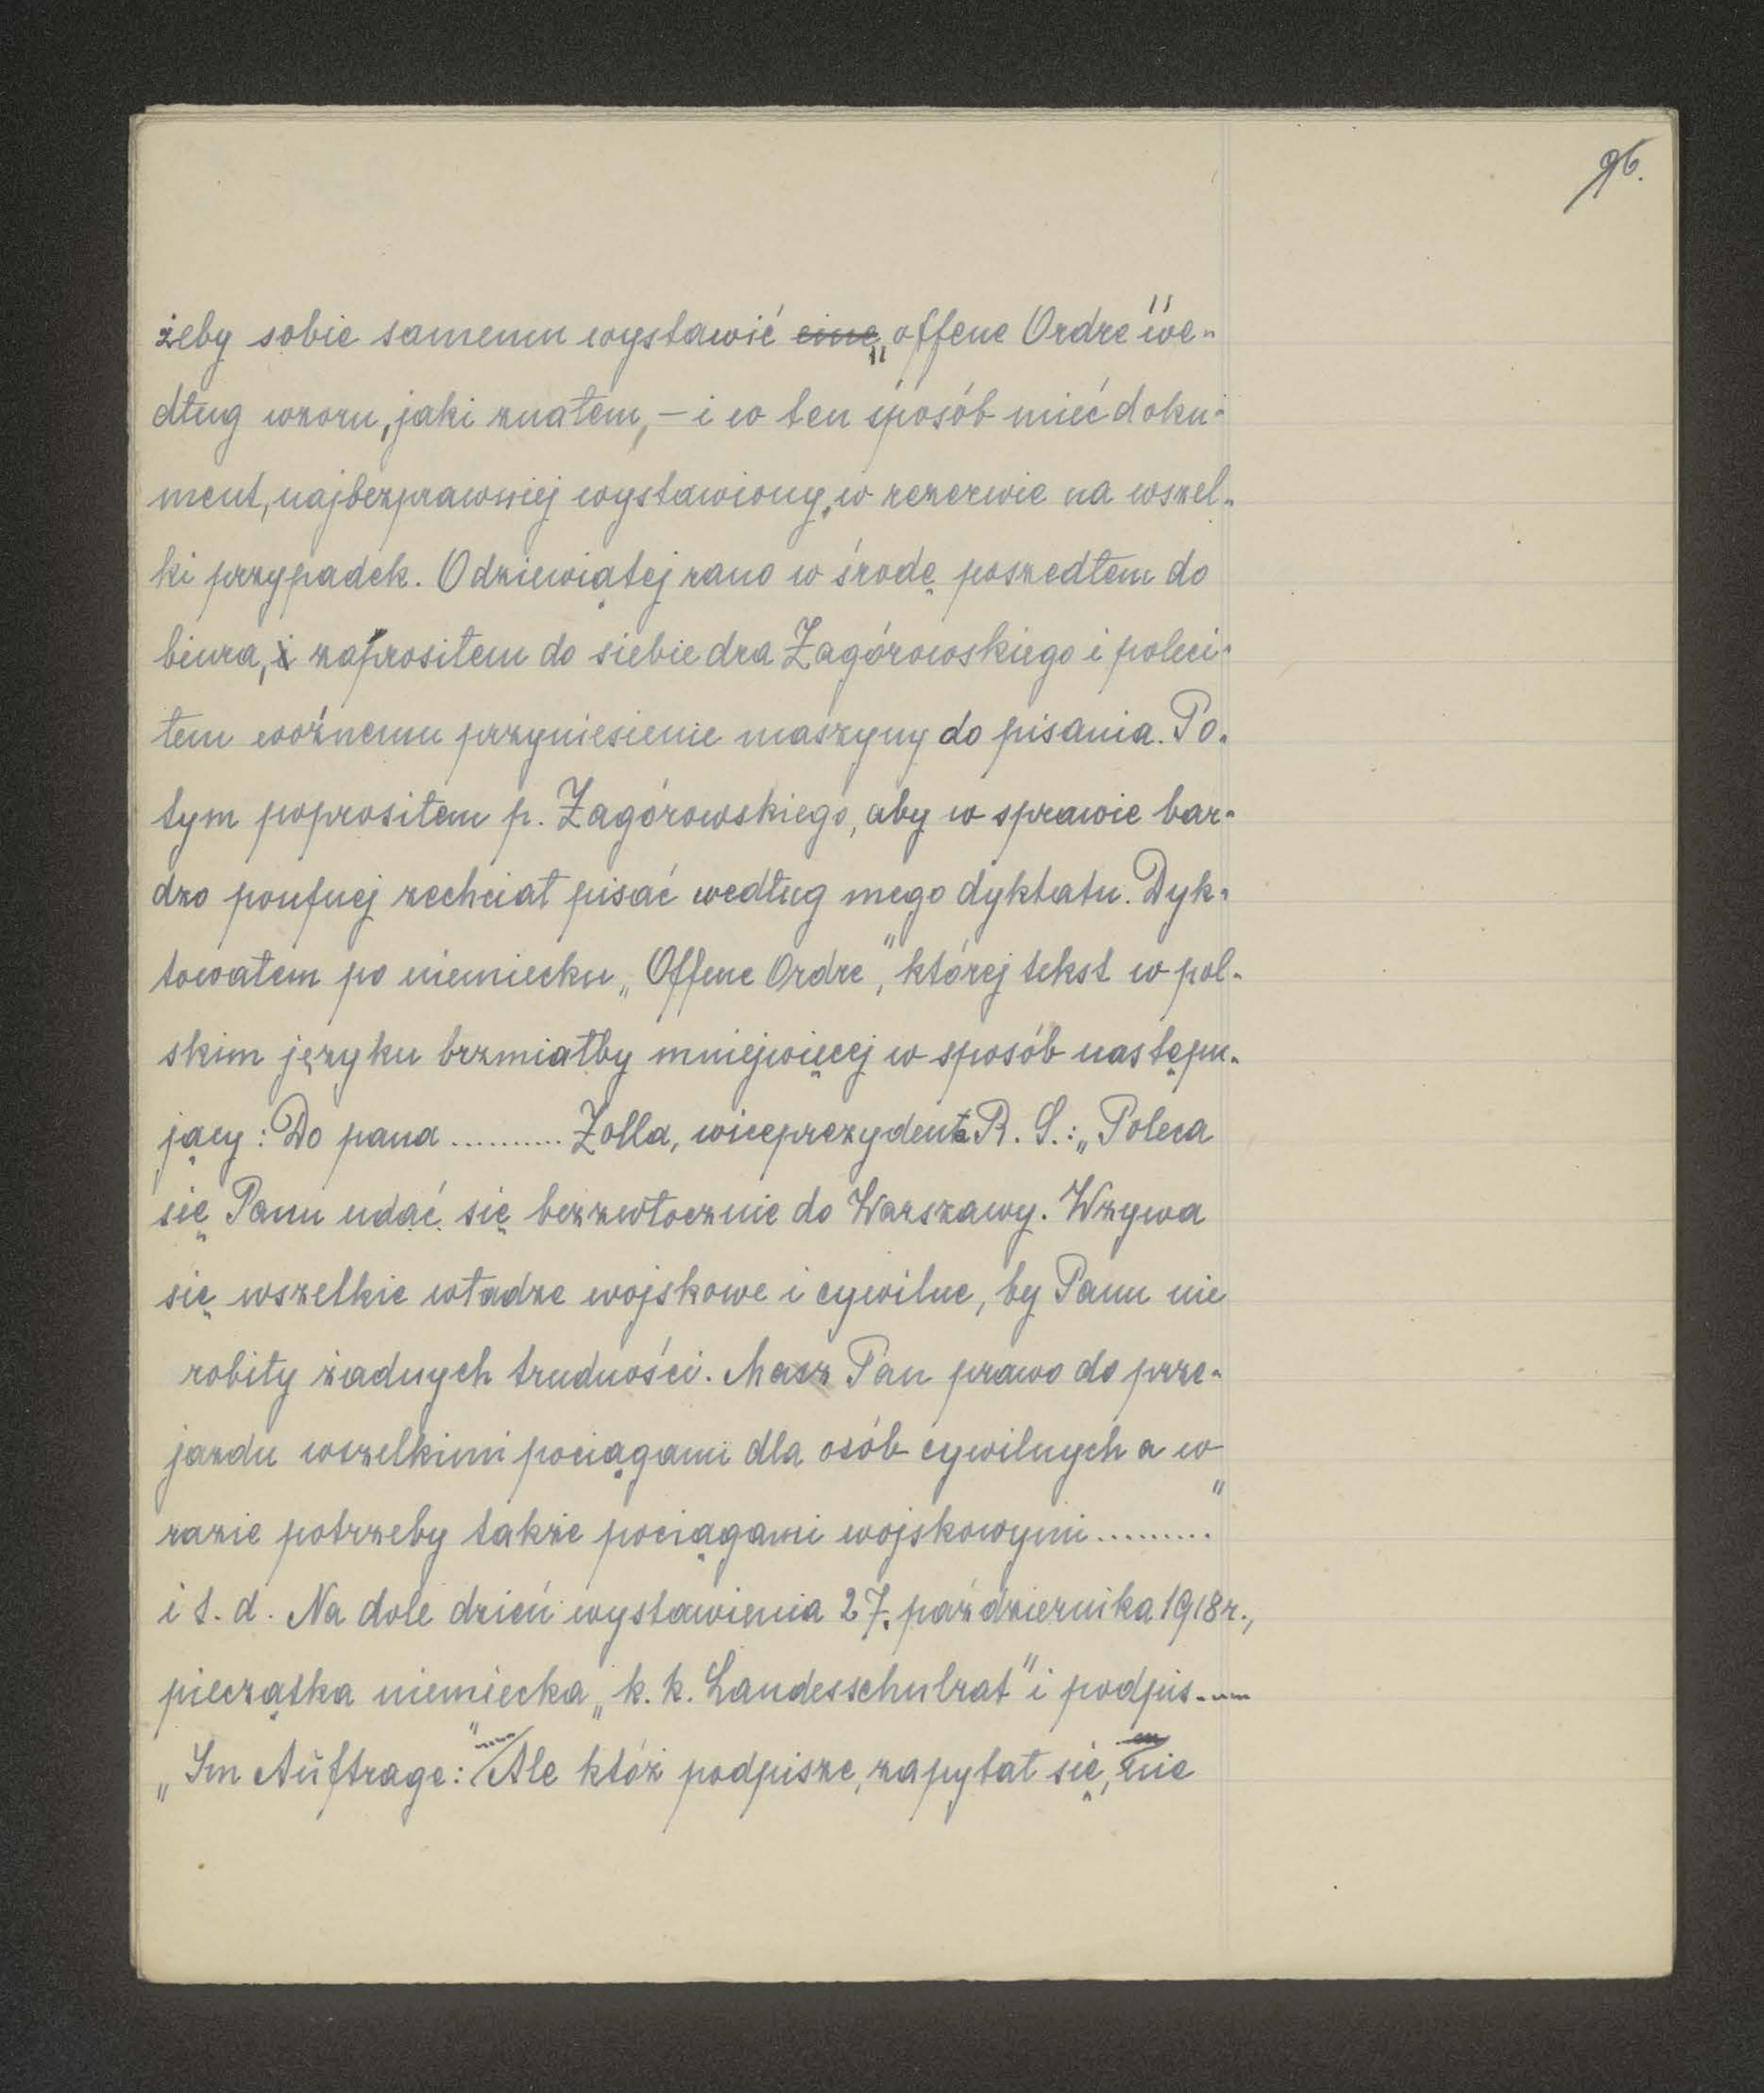 96.
żeby sobie samemu wystawić eine „offene Ordre" we-
dług wzoru, jaki znałem, – i w ten sposób mieć doku-
ment, najbezprawniej wystawiony, w rezerwie na wszel-
ki przypadek. O dziewiątej rano w środę poszedłem do
biura, i zaprosiłem do siebie dra Zagórowskiego i poleci-
łem woźnemu przyniesienie maszyny do pisania. Po-
tym poprosiłem p. Zagórowskiego, aby w sprawie bar-
dzo poufnej zechciał pisać według mego dyktatu. Dyk-
towałem po niemiecku „Offene Ordre", której tekst w pol-
skim języku brzmiałby mniejwięcej w sposób następu-
jący: Do pana .......... Zolla, wiceprezydenta R. S.: „Poleca
się Panu udać się bezzwłocznie do Warszawy. Wzywa
się wszelkie władze wojskowe i cywilne, by Panu nie
robiły żadnych trudności. Masz Pan prawo do prze-
jazdu wszelkimi pociągami dla osób cywilnych a w
razie potrzeby także pociągami wojskowymi........."
i t. d. Na dole dzień wystawienia 27. października 1918 r.,
pieczątka niemiecka „k. k. Landesschulrat" i podpis---
„Im Auftrage: ...." Ale któż podpisze, zapytał się, nie